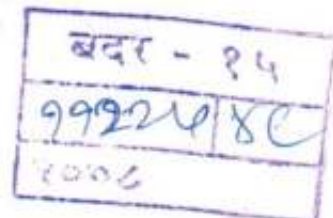 बदर - १५
११२२५ ४८
२००८